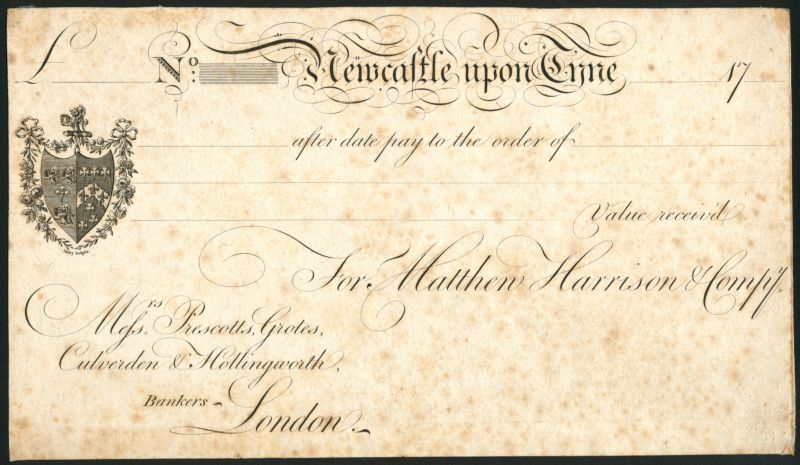 £ No: Newcastle upon Tyne 17
after date pay to the order of
Value receiv'd
For Matthew Harrison & Compy.
Messrs. Prescotts, Grotes,
Culverden & Hollingworth,
Bankers London.